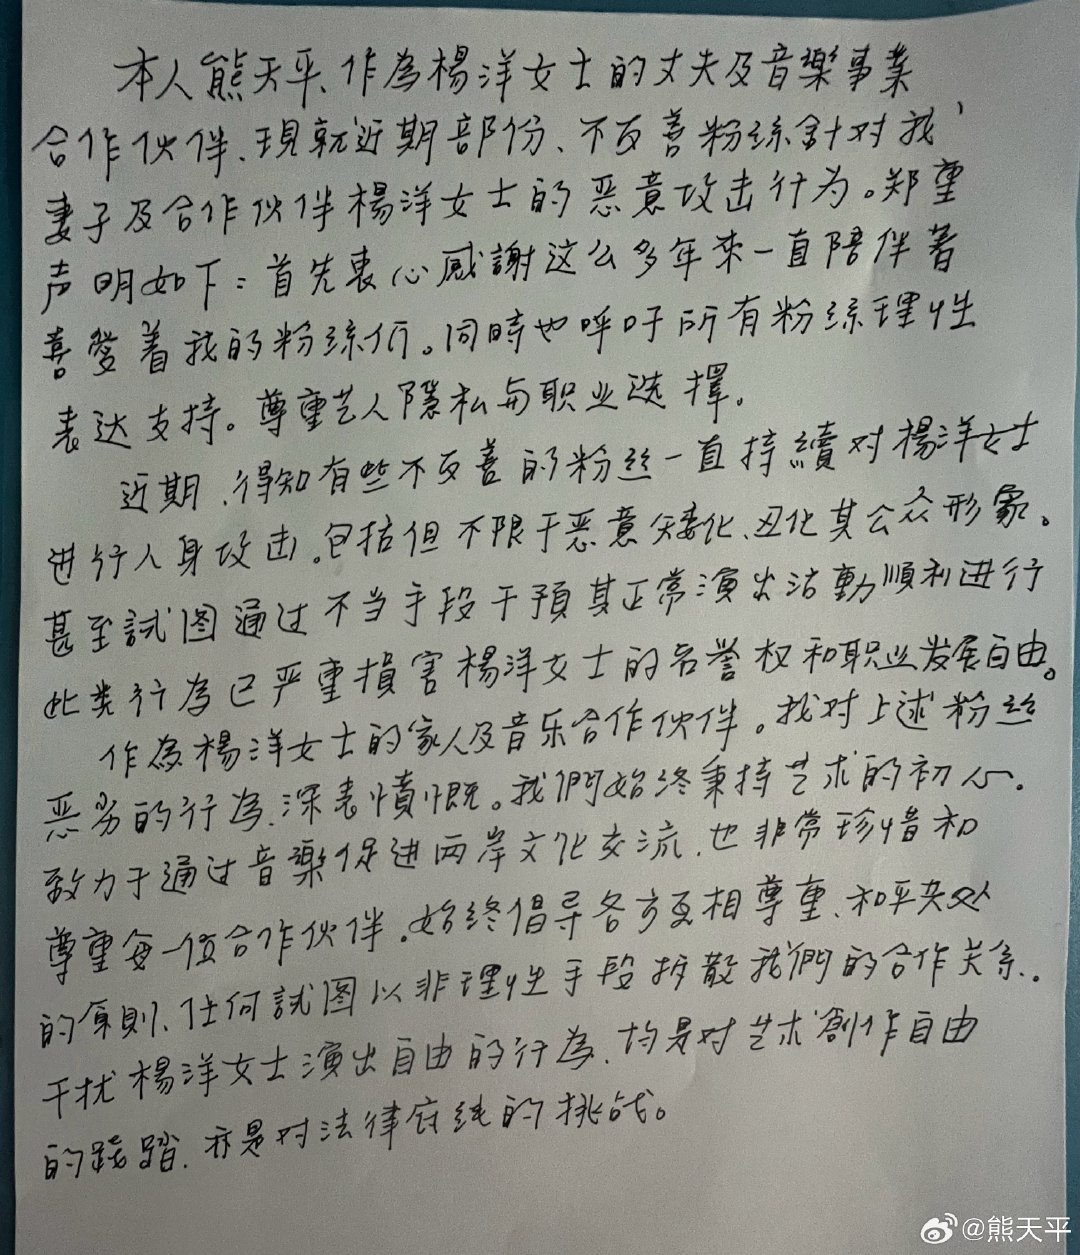 本人熊天平、作為楊洋女士的丈夫及音樂事業
合作伙伴、現就近期部份、不友善粉絲針对我
妻子及合作伙伴楊洋女士的恶意攻击行为。郑重
声明如下：首先衷心感謝这么多年来一直陪伴着
喜愛着我的粉絲们。同時也呼吁所有粉絲理性
表达支持。尊重艺人隱私与职业选擇。
近期、得知有些不友善的粉丝一直持續对楊洋女士
进行人身攻击。包括但不限于恶意矮化、丑化其公众形象。
甚至試图通过不当手段干預其正常演出活動順利进行
此类行為已严重損害楊洋女士的名誉权和职业发展自由。
作為楊洋女士的家人及音乐合作伙伴。我对上述粉丝
恶劣的行為、深表憤慨。我們始终秉持艺术的初心.
致力于通过音樂促进两岸文化交流、也非常珍惜和
尊重每一位合作伙伴。始终倡导各方互相尊重、和平共处
的原則、任何試图以非理性手段拆散我們的合作关系.
干扰楊洋女士演出自由的行為、均是对艺术創作自由
的踐踏、亦是对法律底线的挑战。
@熊天平